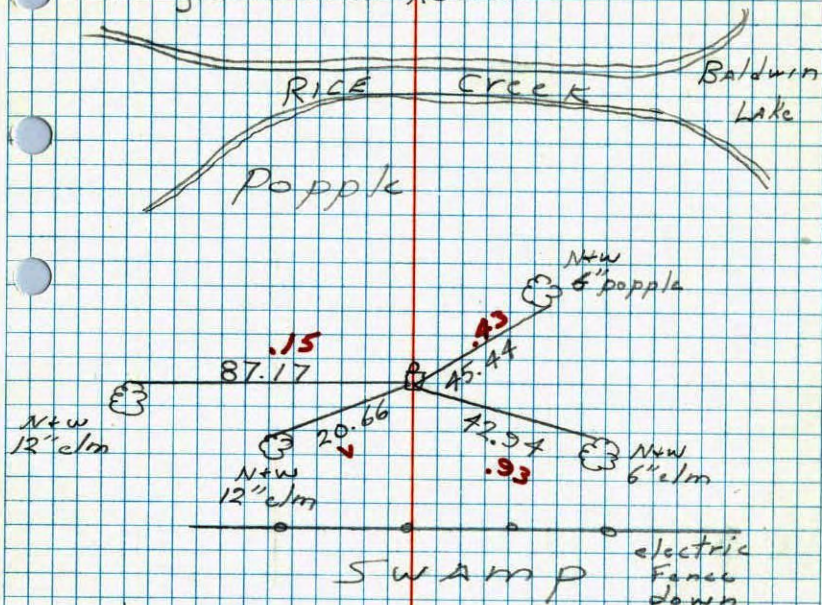 RICE Creek
Baldwin
Lake
Popple
N+W
6" popple
.43
45.44
.15
87.17
N+W
12" elm
20.66
✓
N+W
12" elm
42.94
.93
N+W
6" elm
electric
Fence
down
SWAMP